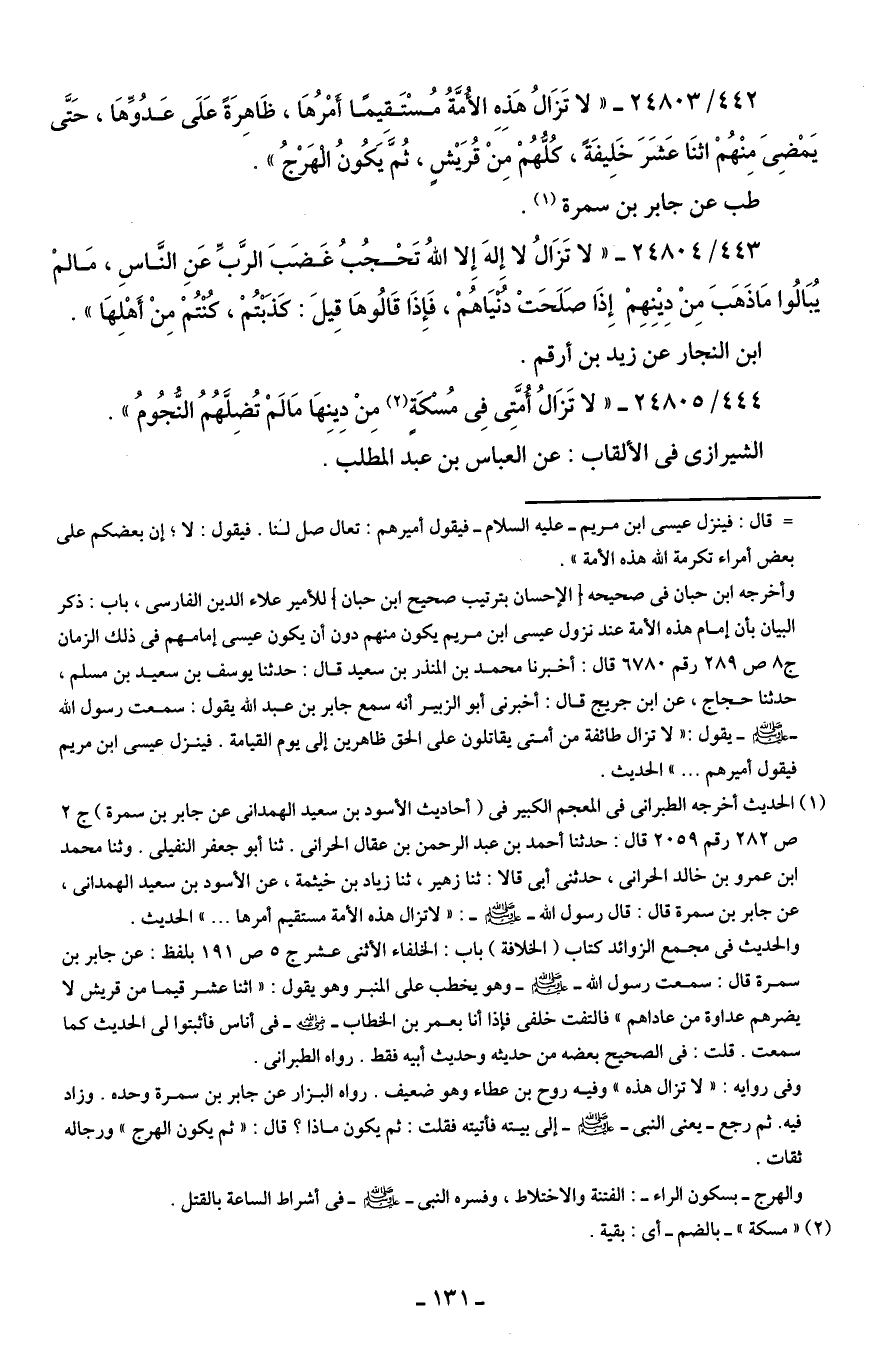 ٤٤٢/ ٢٤٨٠٣ ـ « لا تَزَالُ هَذِهِ الأُمَّةُ مُسْتَقِيمًا أَمْرُهَا ، ظَاهِرَةً عَلَى عَدُوِّهَا ، حَتَّى
يَمْضِىَ مِنْهُمْ اثنَا عَشَرَ خَلِيفَةً ، كُلُّهُمْ مِنْ قُرَيْشٍ ، ثُمَّ يَكُونُ الْهَرْجُ » .
طب عن جابر بن سمرة (١) .
٤٤٣/ ٢٤٨٠٤ ـ « لا تَزَالُ لا إِلهَ إِلا اللهُ تَحْجُبُ غَضَبَ الرَّبِّ عَنِ النَّاسِ ، مَالمْ
يُبَالُوا مَاذَهَبَ مِنْ دِينِهِمْ إِذَا صَلَحَتْ دُنْيَاهُمْ ، فَإِذَا قَالُوهَا قِيلَ : كَذَبْتُمْ ، كُنْتُمْ مِنْ أَهْلِهَا » .
ابن النجار عن زيد بن أرقم .
٤٤٤/ ٢٤٨٠٥ ـ « لا تَزَالُ أُمَّتِى فِى مُسْكَةٍ(٢) مِنْ دِينِهَا مَالَمْ تُضِلَّهُمُ النُّجُومُ » .
الشيرازى فى الألقاب : عن العباس بن عبد المطلب .
= قال : فينزل عيسى ابن مريم ـ عليه السلام ـ فيقول أميرهم : تعال صل لنا . فيقول : لا ؛ إن بعضكم على
بعض أمراء تكرمة الله هذه الأمة » .
وأخرجه ابن حبان فى صحيحه { الإحسان بترتيب صحيح ابن حبان } للأمير علاء الدين الفارسى ، باب : ذكر
البيان بأن إمام هذه الأمة عند نزول عيسى ابن مريم يكون منهم دون أن يكون عيسى إمامهم فى ذلك الزمان
ج٨ ص ٢٨٩ رقم ٦٧٨٠ قال : أخبرنا محمد بن المنذر بن سعيد قال : حدثنا يوسف بن سعيد بن مسلم ،
حدثنا حجاج ، عن ابن جريج قال : أخبرنى أبو الزبير أنه سمع جابر بن عبد الله يقول : سمعت رسول الله
ـ ﷺ ـ يقول :« لا تزال طائفة من أمتى يقاتلون على الحق ظاهرين إلى يوم القيامة . فينزل عيسى ابن مريم
فيقول أميرهم ... » الحديث .
(١) الحديث أخرجه الطبرانى فى المعجم الكبير فى ( أحاديث الأسود بن سعيد الهمدانى عن جابر بن سمرة ) ج ٢
ص ٢٨٢ رقم ٢٠٥٩ قال : حدثنا أحمد بن عبد الرحمن بن عقال الحرانى . ثنا أبو جعفر النفيلى . وثنا محمد
ابن عمرو بن خالد الحرانى ، حدثنى أبى قالا : ثنا زهير ، ثنا زياد بن خيثمة ، عن الأسود بن سعيد الهمدانى ،
عن جابر بن سمرة قال : قال رسول الله ـ ﷺ ـ : « لاتزال هذه الأمة مستقيم أمرها ... » الحديث .
والحديث فى مجمع الزوائد كتاب ( الخلافة ) باب : الخلفاء الأثنى عشر ج ٥ ص ١٩١ بلفظ : عن جابر بن
سمرة قال : سمعت رسول الله ـ ﷺ ـ وهو يخطب على المنبر وهو يقول : « اثنا عشر قيما من قريش لا
يضرهم عداوة من عاداهم » فالتفت خلفى فإذا أنا بعمر بن الخطاب ـ رضي الله عنه ـ فى أناس فأثبتوا لى الحديث كما
سمعت . قلت : فى الصحيح بعضه من حديثه وحديث أبيه فقط . رواه الطبرانى .
وفى روايه : « لا تزال هذه » وفيه روح بن عطاء وهو ضعيف . رواه البزار عن جابر بن سمرة وحده . وزاد
فيه. ثم رجع ـ يعنى النبى ـ ﷺ ـ إلى بيته فأتيته فقلت : ثم يكون ماذا ؟ قال : « ثم يكون الهرج » ورجاله
ثقات .
والهرج ـ بسكون الراء ـ : الفتنة والاختلاط ، وفسره النبى ـ ﷺ ـ فى أشراط الساعة بالقتل .
(٢) « مسكة » ـ بالضم ـ أى : بقية .
ـ ١٣١ ـ